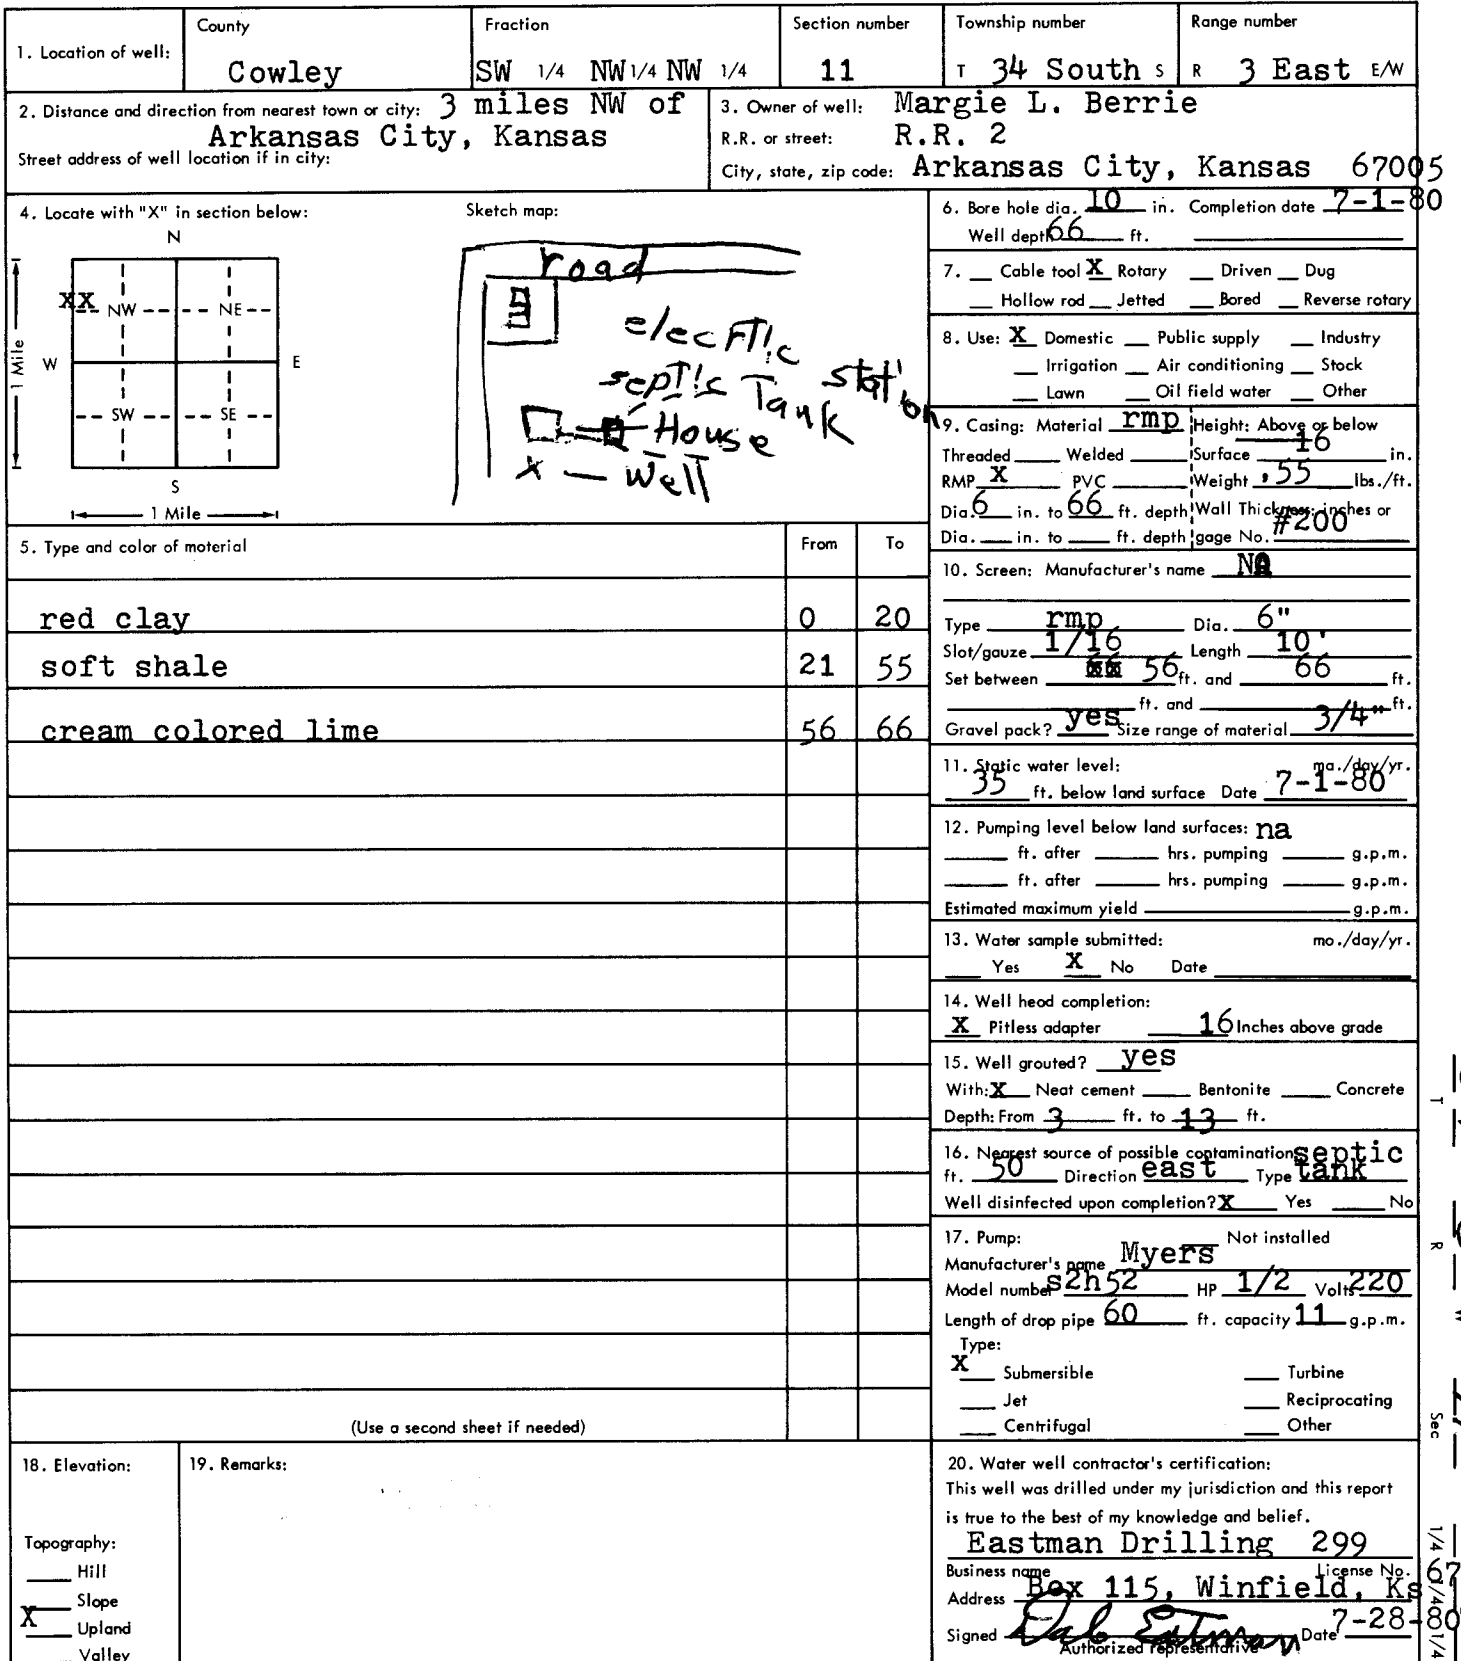 County Fraction Section number Township number Range number
1. Location of well: Cowley SW 1/4 NW 1/4 NW 1/4 11 T 34 South S R 3 East E/W
2. Distance and direction from nearest town or city: 3 miles NW of
Arkansas City, Kansas
Street address of well location if in city:
3. Owner of well: Margie L. Berrie
R.R. or street: R.R. 2
City, state, zip code: Arkansas City, Kansas 67005
4. Locate with "X" in section below: Sketch map:
N
XX NW NE
W E
SW SE
S
1 Mile
1 Mile
road
electric
septic Tank station
House
X — Well
5. Type and color of material From To
red clay 0 20
soft shale 21 55
cream colored lime 56 66
(Use a second sheet if needed)
6. Bore hole dia. 10 in. Completion date 7-1-80
Well depth 66 ft.
7. Cable tool X Rotary Driven Dug
Hollow rod Jetted Bored Reverse rotary
8. Use: X Domestic Public supply Industry
Irrigation Air conditioning Stock
Lawn Oil field water Other
9. Casing: Material rmp Height: Above or below
Threaded Welded Surface 16 in.
RMP X PVC Weight .55 lbs./ft.
Dia. 6 in. to 66 ft. depth Wall Thickness: inches or
Dia. in. to ft. depth gage No. #200
10. Screen: Manufacturer's name NA
Type rmp Dia. 6"
Slot/gauze 1/16 Length 10'
Set between 56 ft. and 66 ft.
ft. and ft.
Gravel pack? yes Size range of material 3/4"
11. Static water level: mo./day/yr.
35 ft. below land surface Date 7-1-80
12. Pumping level below land surfaces: na
ft. after hrs. pumping g.p.m.
ft. after hrs. pumping g.p.m.
Estimated maximum yield g.p.m.
13. Water sample submitted: mo./day/yr.
Yes X No Date
14. Well head completion:
X Pitless adapter 16 Inches above grade
15. Well grouted? yes
With: X Neat cement Bentonite Concrete
Depth: From 3 ft. to 13 ft.
16. Nearest source of possible contamination: septic
ft. 50 Direction east Type tank
Well disinfected upon completion? X Yes No
17. Pump: Not installed
Manufacturer's name Myers
Model number s2h52 HP 1/2 Volts 220
Length of drop pipe 60 ft. capacity 11 g.p.m.
Type:
X Submersible Turbine
Jet Reciprocating
Centrifugal Other
18. Elevation:
Topography:
Hill
Slope
X Upland
Valley
19. Remarks:
20. Water well contractor's certification:
This well was drilled under my jurisdiction and this report
is true to the best of my knowledge and belief.
Eastman Drilling 299
Business name License No.
Address Box 115, Winfield, Ks 67
Signed Dale Eastman Date 7-28-80
Authorized representative
T
R
Sec
1/4 1/4 1/4